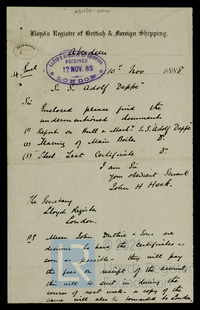 Lloyd's Register of British & Foreign Shipping.
Aberdeen
10th Nov 1888.
RECEIVED
12 NOV. 88
LONDON
S. S. Adolf Deppe
Sir
Enclosed please find the
undermentioned documents
(1) Report on Hull & Mach. S.S. Adolf Deppe
(2) Tracing of Main Boiler Do.
(3) Steel Test Certificate Do
I am Sir
Your obedient Servant
John H Heck.
The Secretary
Lloyds Register
London.
PS Messrs John Duthie & Sons are
desirous to have the Certificates as
soon as possible - they will pay
the fees on receipt of the account,
this will be sent in during the
course of next week - a copy of the
same will also be forwarded to London